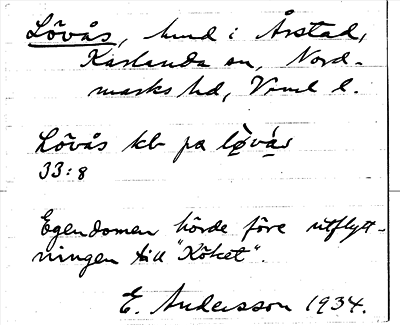 Lövås, hmd i Årstad,
Karlanda sn, Nord-
marks hd, Vrml l.
Lövås kb pa lø̀vás
33:8
Egendomen hörde före utflytt-
ningen till "Köket".
E. Andersson 1934.